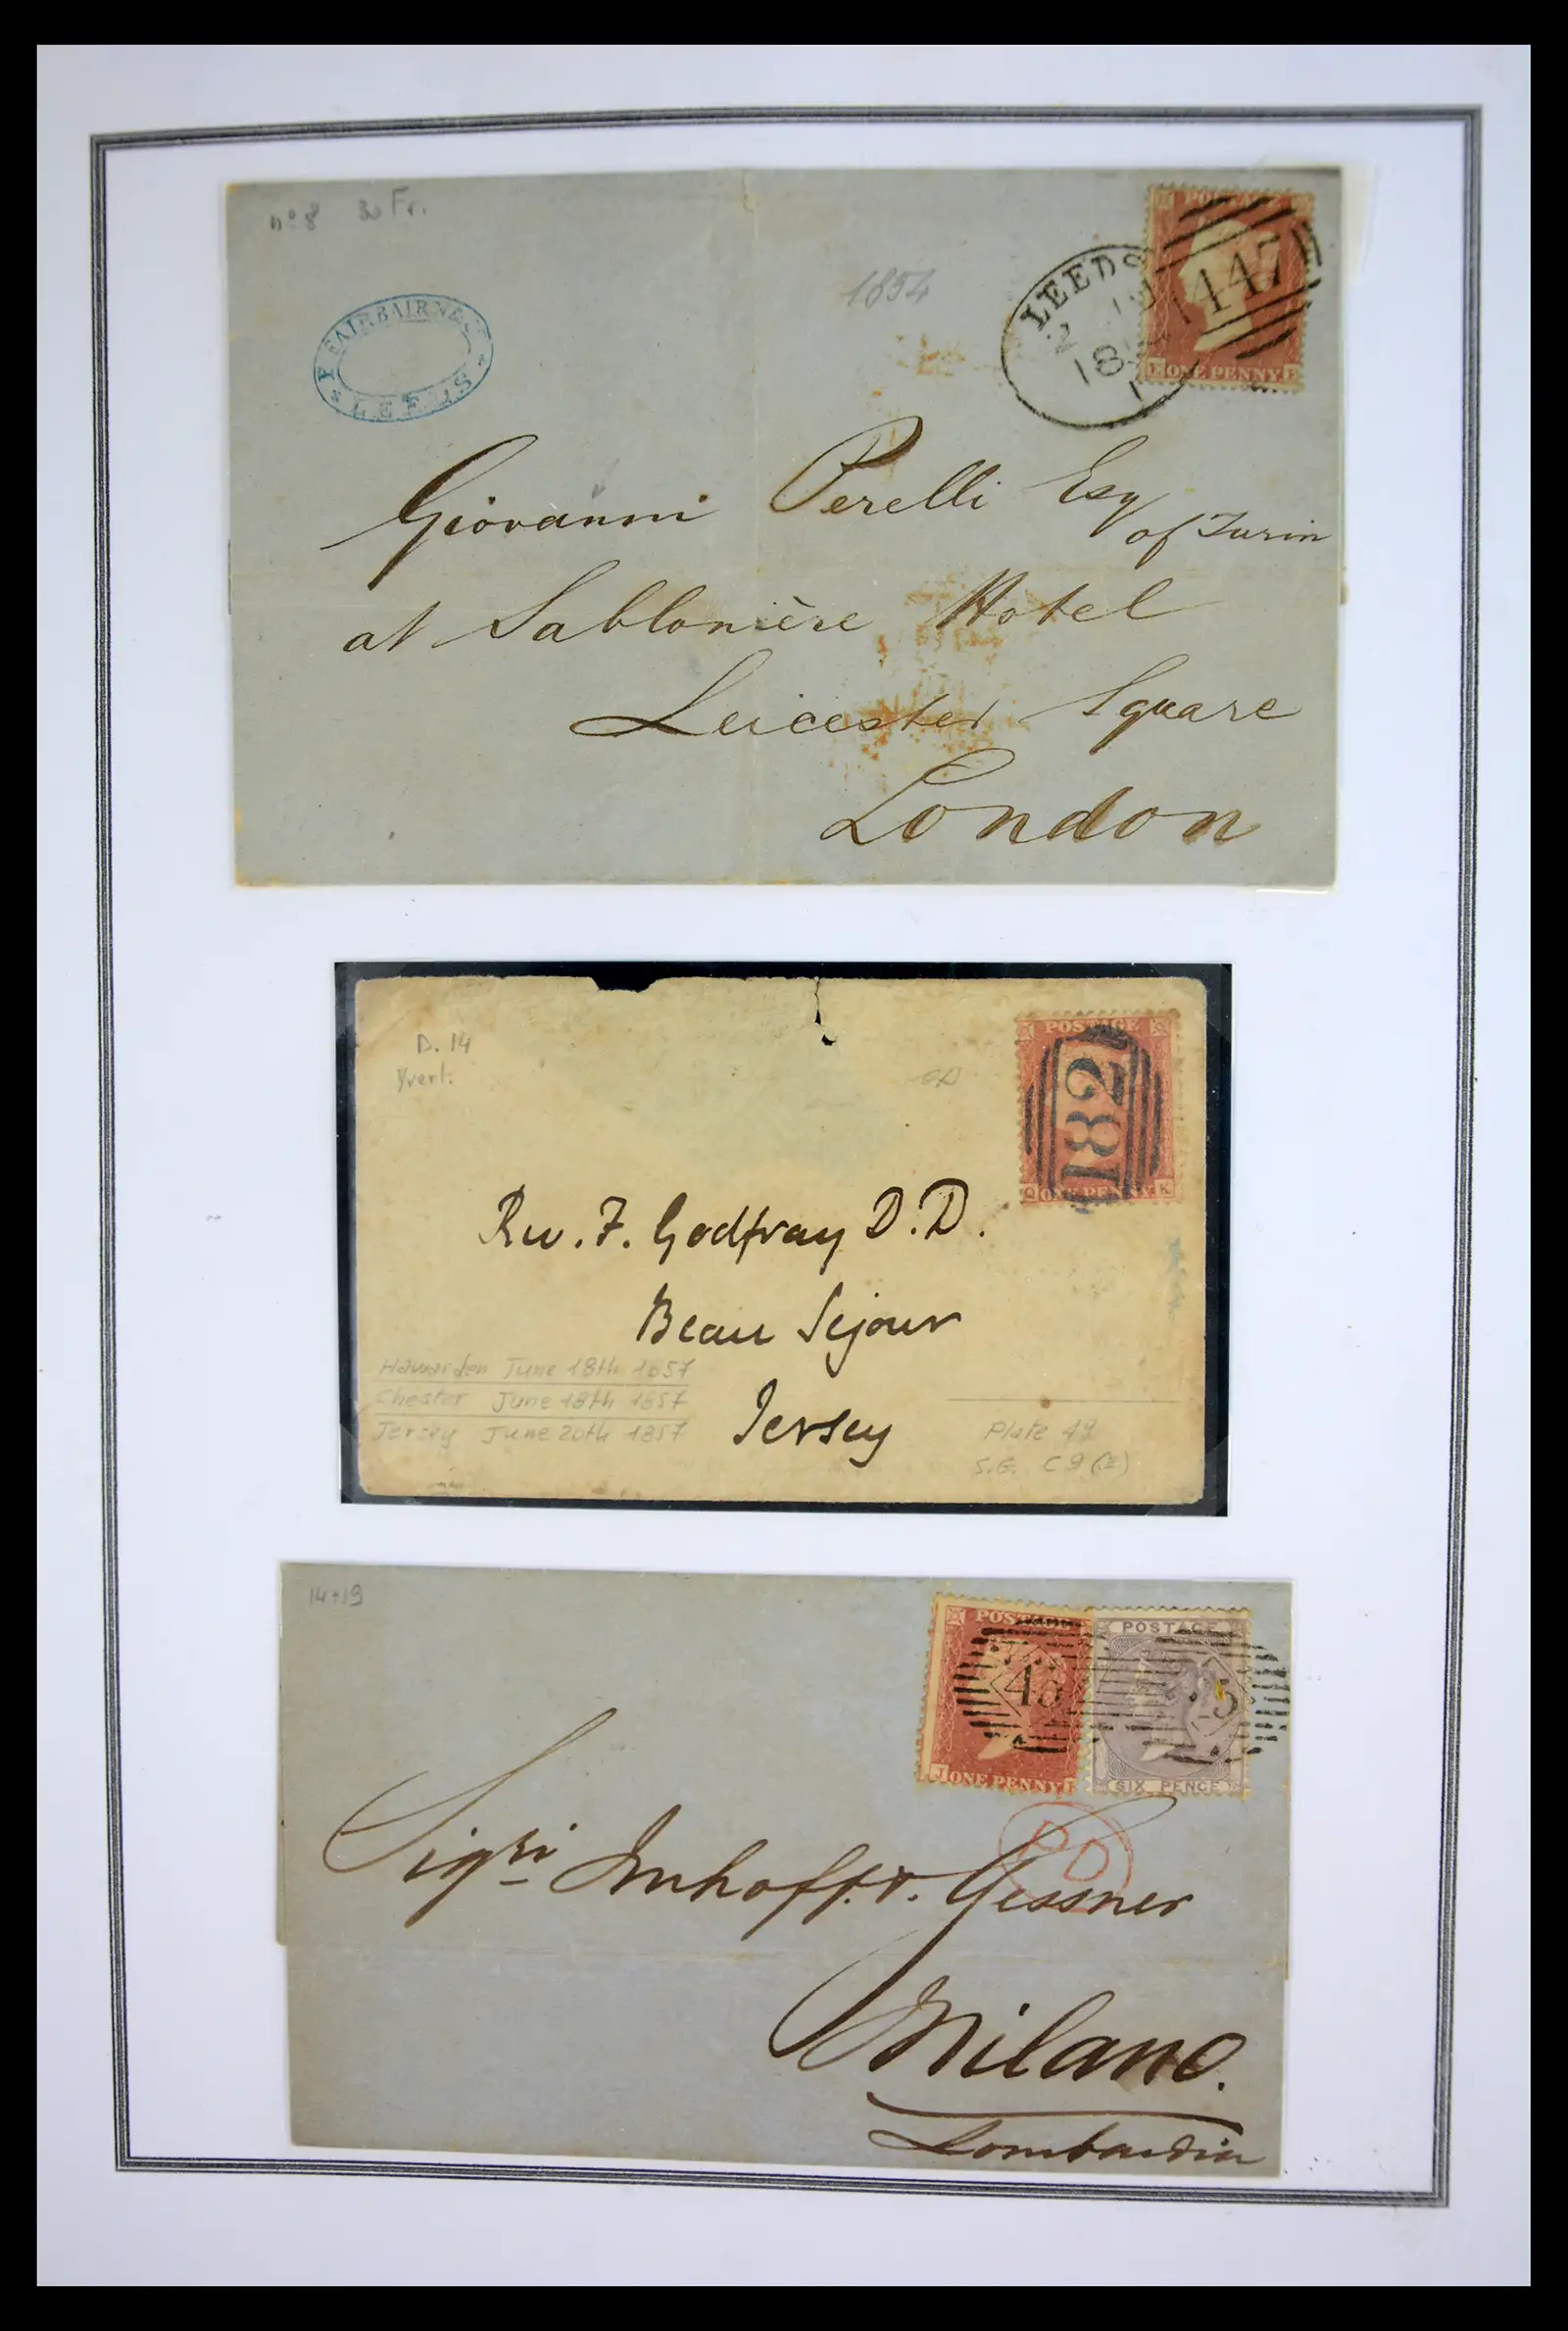 nº 8 30 Fr.
1854
P. FAIRBAIRN & Cº
LEEDS
LEEDS
18
1
447
POSTAGE
E ONE PENNY E
Giovanni Perelli Esq
of Turin
at Sablonière Hotel
Leicester Square
London
D. 14
Yvert.
POSTAGE
182
Q ONE PENNY K
Rev. F. Godfray D.D.
Beau Sejour
Jersey
Hawarden June 18th 1857
Chester June 18th 1857
Jersey June 20th 1857
Plate 49
S.G. C9
14+19
POSTAGE
45
J ONE PENNY
POSTAGE
5
SIX PENCE
PD
Sigri Imhoff. v. Gessner
Milano.
Lombardia